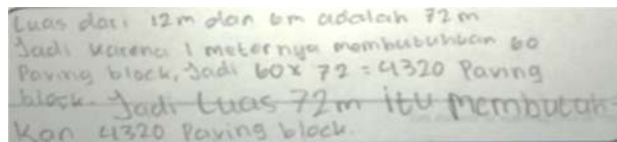 Luas dari 12m dan 6m adalah 72 m
Jadi karena 1 meternya membutuhkan 60
Paving block, Jadi 60 x 72 = 4320 Paving
block. Jadi Luas 72m itu membutuh
kan 4320 Paving block.